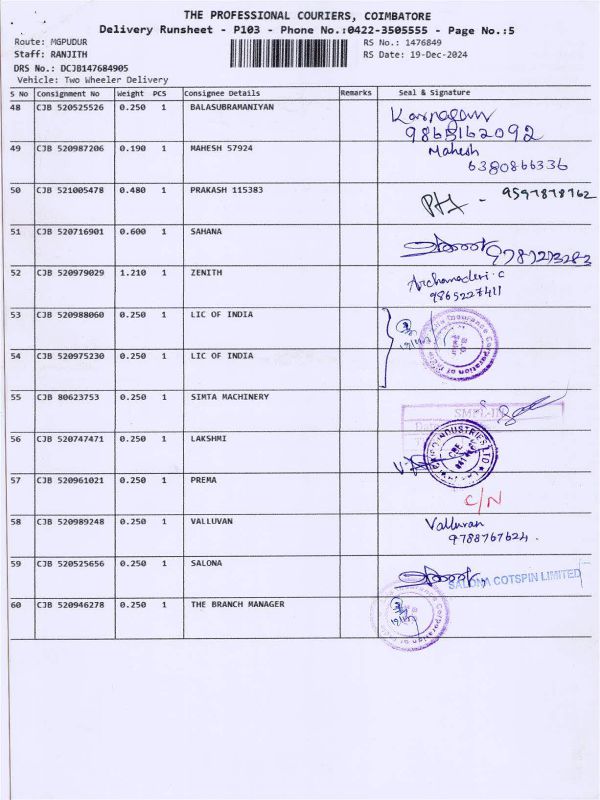 THE PROFESSIONAL COURIERS, COIMBATORE
Delivery Runsheet - P103 - Phone No.:0422-3505555 - Page No.:5
Route: MGPUDUR RS No.: 1476849
Staff: RANJITH RS Date: 19-Dec-2024
DRS No.: DCJB147684905
Vehicle: Two Wheeler Delivery
S No Consignment No Weight PCS Consignee Details Remarks Seal & Signature
48 CJB 520525526 0.250 1 BALASUBRAMANIYAN
49 CJB 520987206 0.190 1 MAHESH 57924 Mahesh
6380866336
50 CJB 521005478 0.480 1 PRAKASH 115383 9597878762
51 CJB 520716901 0.600 1 SAHANA
52 CJB 520979029 1.210 1 ZENITH
9865227411
53 CJB 520988060 0.250 1 LIC OF INDIA
54 CJB 520975230 0.250 1 LIC OF INDIA
55 CJB 80623753 0.250 1 SIMTA MACHINERY
56 CJB 520747471 0.250 1 LAKSHMI
57 CJB 520961021 0.250 1 PREMA
C/N
58 CJB 520989248 0.250 1 VALLUVAN Valluvan
9788767624.
59 CJB 520525656 0.250 1 SALONA SALONA COTSPIN LIMITED
60 CJB 520946278 0.250 1 THE BRANCH MANAGER